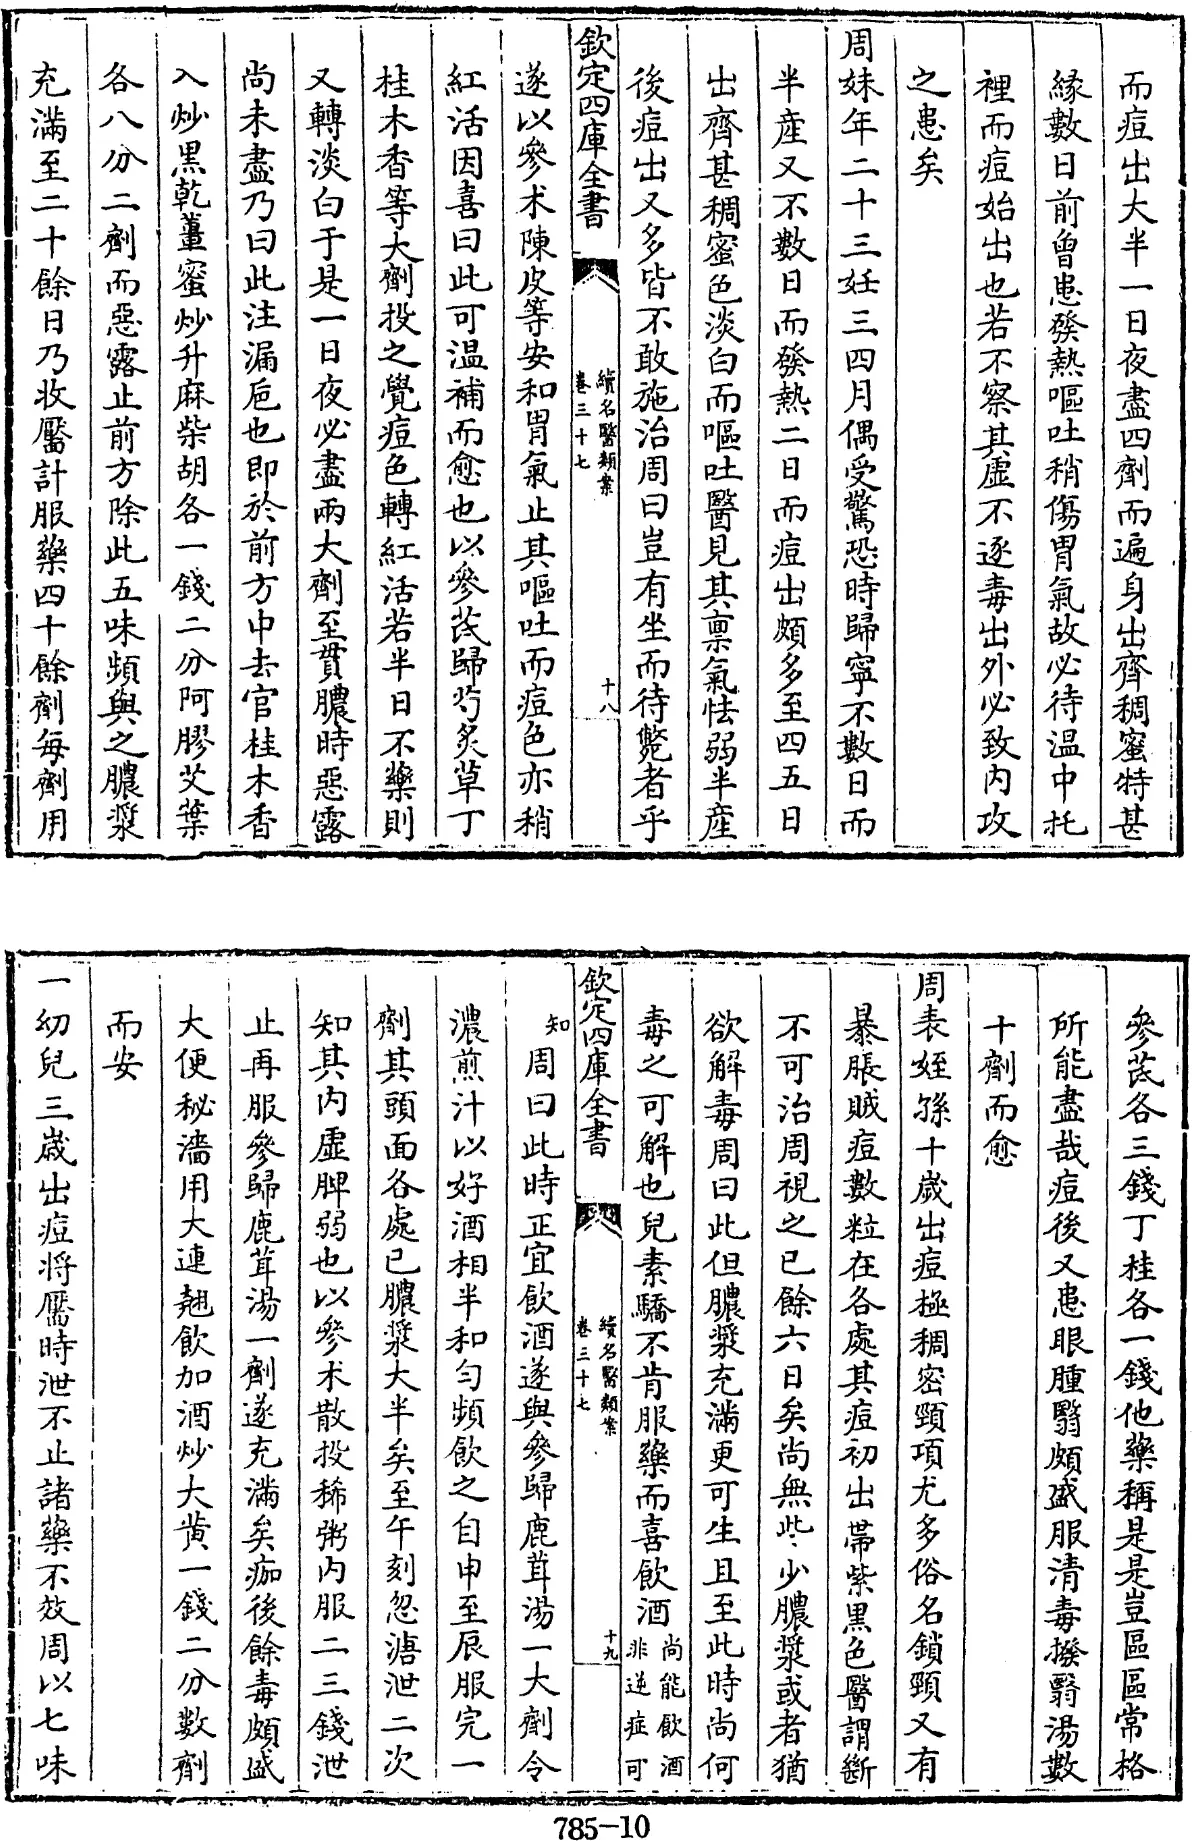 而痘出大半一日夜盡四劑而遍身出齊稠蜜特甚
縁數日前曾患發熱嘔吐稍傷胃氣故必待温中托
裡而痘始出也若不察其虛不逐毒出外必致内攻
之患矣
周妹年二十三妊三四月偶受驚恐時歸寧不數日而
半産又不數日而發熱二日而痘出頗多至四五日
出齊甚稠蜜色淡白而嘔吐醫見其禀氣怯弱半産
後痘出又多皆不敢施治周曰豈有坐而待斃者乎
欽定四庫全書
續名醫類案
卷三十七
十八
遂以參术陳皮等安和胃氣止其嘔吐而痘色亦稍
紅活因喜曰此可温補而愈也以參芪歸芍炙草丁
桂木香等大劑投之覺痘色轉紅活若半日不藥則
又轉淡白于是一日夜必盡兩大劑至貫膿時惡露
尚未盡乃曰此注漏巵也即於前方中去官桂木香
入炒黒乾薑蜜炒升麻柴胡各一錢二分阿膠艾葉
各八分二劑而惡露止前方除此五味頻與之膿漿
充滿至二十餘日乃收靨計服藥四十餘劑每劑用
參芪各三錢丁桂各一錢他藥稱是是豈區區常格
所能盡哉痘後又患眼腫翳頗盛服清毒撥翳湯數
十劑而愈
周表姪孫十歲出痘極稠密頸項尤多俗名鎖頸又有
暴脹賊痘數粒在各處其痘初出帯紫黒色醫謂斷
不可治周視之已餘六日矣尚無些少膿漿或者猶
欲解毒周曰此但膿漿充滿更可生且至此時尚何
毒之可解也兒素驕不肯服藥而喜飲酒尚能飲酒
非逆症可
欽定四庫全書
續名醫類案
卷三十七
十九
知周曰此時正宜飲酒遂與參歸鹿茸湯一大劑令
濃煎汁以好酒相半和匀頻飲之自申至辰服完一
劑其頭面各處已膿漿大半矣至午刻忽溏泄二次
知其内虛脾弱也以參术散投稀粥内服二三錢泄
止再服參歸鹿茸湯一劑遂充滿矣痂後餘毒頗盛
大便秘濇用大連翹飲加酒炒大黄一錢二分數劑
而安
一幼兒三歲出痘将靨時泄不止諸藥不效周以七味
785-10